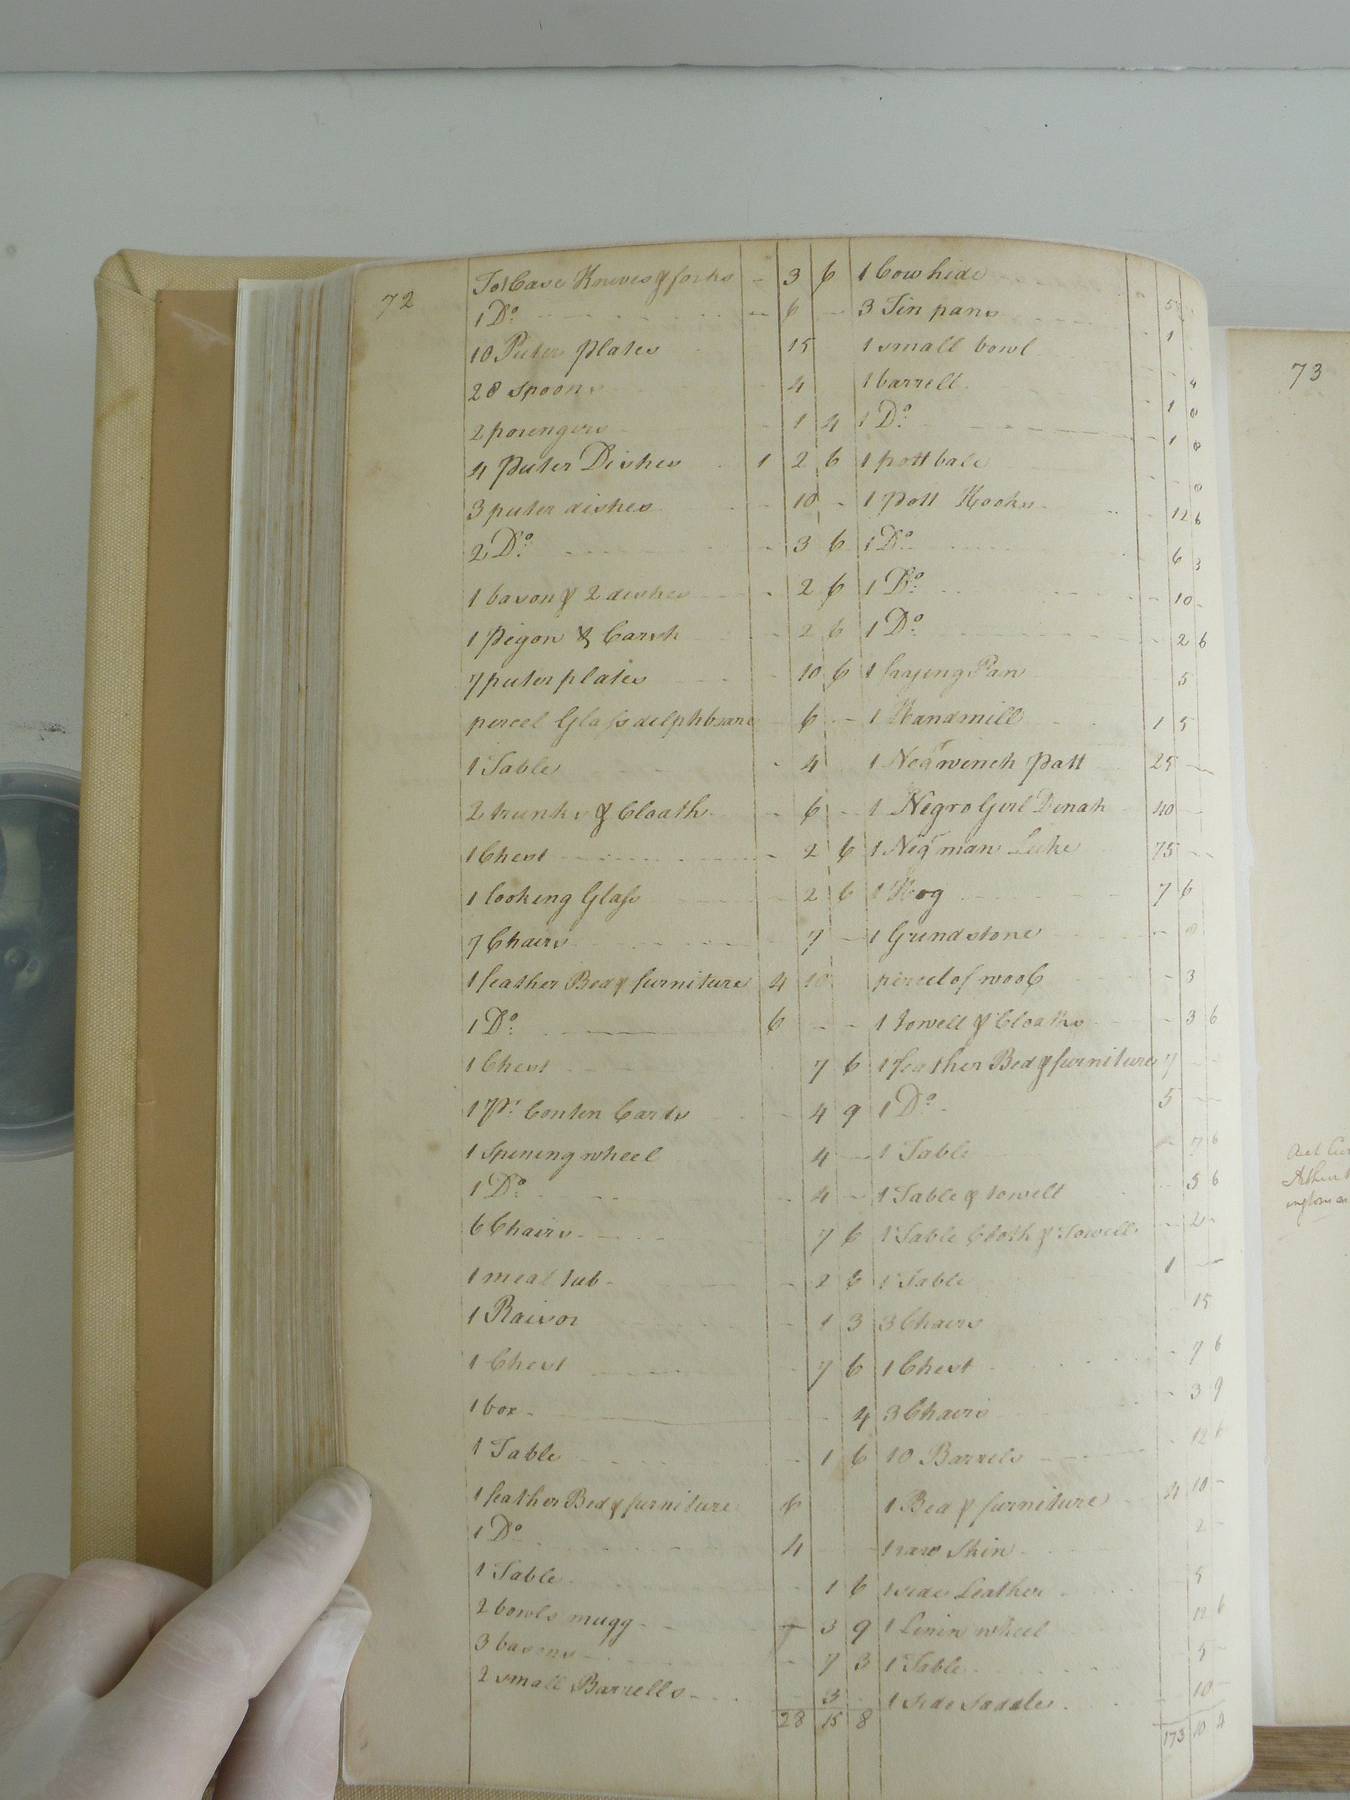 72
To 1 Case Knives & forks - 3 6
1 Do. - 6 -
10 Puter Plates 15
28 spoons 4
2 porengers - 1 4
4 Puter Dishes 1 2 6
3 puter dishes - 10 -
2 Do. - 3 6
1 bason & 2 dishes - 2 6
1 Pigon & - 2 6
7 puter plates - 10 6
percel Glass delphware - 6 -
1 Table - 4
2 trunks & Cloath - 6 -
1 Chest - 2 6
1 looking Glass - 2 6
7 Chairs - 7 -
1 feather Bed & furniture 4 10
1 Do. 6 - -
1 Chest 7 6
1 Pr. Cards - 4 9
1 Spining wheel 4 -
1 Do. - 4 -
6 Chairs 7 6
1 meal tub - 2 6
1 Raisor - 1 3
1 Chest - 7 6
1 box - - 4
1 Table - 1 6
1 feather Bed & furniture 6
1 Do. 4
1 Table - 1 6
2 bowls mugg - 3 9
3 basons - 7 3
2 small Barrells - 3
28 15 8
1 Cow hide
3 Tin pans 5
1 small bowl 1
1 barrell
1 Do. 1 8
1 pott bale 1 8
1 Pott Hooks - - 8
1 Do. 12 6
1 Do. 6 3
1 Do. - 10 -
1 frying Pan 2 6
1 Handmill 5
1 Negr wench Patt 1 5
1 Negro Girl Dinah 25 -
1 Negr man Luke 40 -
1 Hog 75 - -
1 Grindstone 7 6
percel of wool
1 towell & Cloaths - 3
1 feather Bed & furniture - 3 6
1 Do. 7 -
1 Table 5 - -
1 Table & towell 7 6
1 Table Cloth & Towell 3 6
1 Table - 2 -
3 Chairs 1 -
1 Chest 15
3 Chairs - 7 6
10 Barrels - 3 9
1 Bed & furniture - 12 6
1 raw Skin 4 10 -
1 side Leather 2 -
1 Linin wheel 5
1 Table 12 6
1 side Saddle 5 -
- 10 -
173 10 4
73